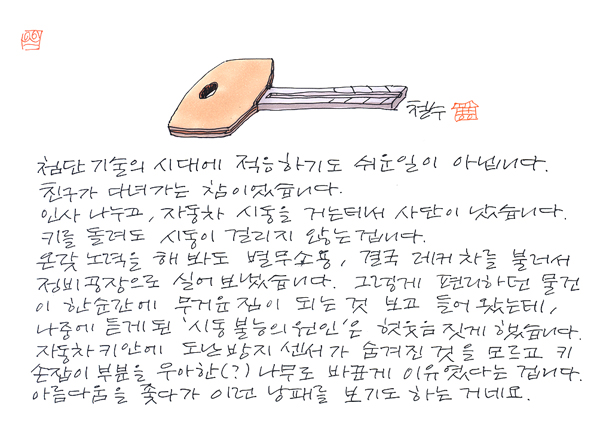 철수
첨단 기술의 시대에 적응하기도 쉬운일이 아닙니다.
친구가 다녀가는 참이었습니다.
인사 나누고, 자동차 시동을 거는데서 사단이 났습니다.
키를 돌려도 시동이 걸리지 않는겁니다.
온갖 노력을 해 봐도 별무소용, 결국 레커차를 불러서
정비공장으로 실어 보냈습니다. 그렇게 편리하던 물건
이 한순간에 무거운 짐이 되는 것 보고 들어왔는데,
나중에 듣게 된 '시동불능의 원인'은 헛웃음 짓게 했습니다.
자동차키안에 도난방지센서가 숨겨진 것을 모르고 키
손잡이 부분을 우아한(?) 나무로 바꾼게 이유였다는 겁니다.
아름다움을 좇다가 이런 낭패를 보기도 하는 거네요.